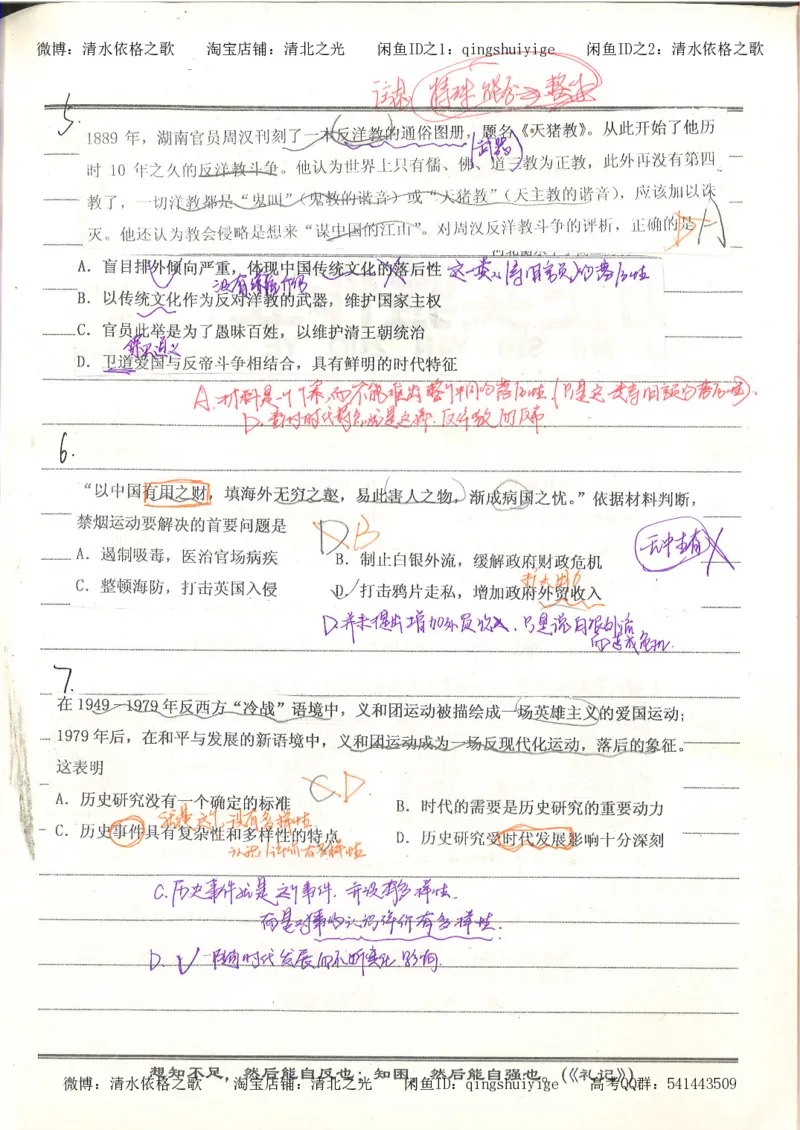 微博：清水依格之歌 淘宝店铺：清北之光 闲鱼ID之1：qingshuiyige 闲鱼ID之2：清水依格之歌
特殊 整体
5.
1889 年，湖南官员周汉刊刻了一本反洋教的通俗图册，题名《天猪教》。从此开始了他历
(武器)
时 10 年之久的反洋教斗争。他认为世界上只有儒、佛、道三教为正教，此外再没有第四
教了，一切洋教都是“鬼叫”（鬼教的谐音）或“天猪教”（天主教的谐音），应该加以诛
灭。他还认为教会侵略是想来“谋中国的江山”。对周汉反洋教斗争的评析，正确的是 D A
A．盲目排外倾向严重，体现中国传统文化的落后性
B．以传统文化作为反对洋教的武器，维护国家主权
C．官员此举是为了愚昧百姓，以维护清王朝统治
D．卫道爱国与反帝斗争相结合，具有鲜明的时代特征
6.
“以中国有用之财，填海外无穷之壑，易此害人之物，渐成病国之忧。”依据材料判断，
禁烟运动要解决的首要问题是 D B
无中生有 X
A．遏制吸毒，医治官场病疾 B．制止白银外流，缓解政府财政危机
C．整顿海防，打击英国入侵 D．打击鸦片走私，增加政府外贸收入
D.并未提出增加外贸收入.只是说白银外流
而造成危机.
7.
在 1949—1979 年反西方“冷战”语境中，义和团运动被描绘成一场英雄主义的爱国运动；
1979 年后，在和平与发展的新语境中，义和团运动成为一场反现代化运动，落后的象征。
这表明 C D.
A．历史研究没有一个确定的标准 B．时代的需要是历史研究的重要动力
就是这个,没有多样性
C．历史事件具有复杂性和多样性的特点 D．历史研究受时代发展影响十分深刻
认识/评价有多样性
C.历史事件就是这个事件，并没有多样性.
而是对事的认识评价有多样性.
D. √ 随时代发展而不断变化 影响.
想知不足，然后能自反也；知困，然后能自强也。(《礼记》)
微博：清水依格之歌 淘宝店铺：清北之光 闲鱼ID：qingshuiyige 高考QQ群：541443509